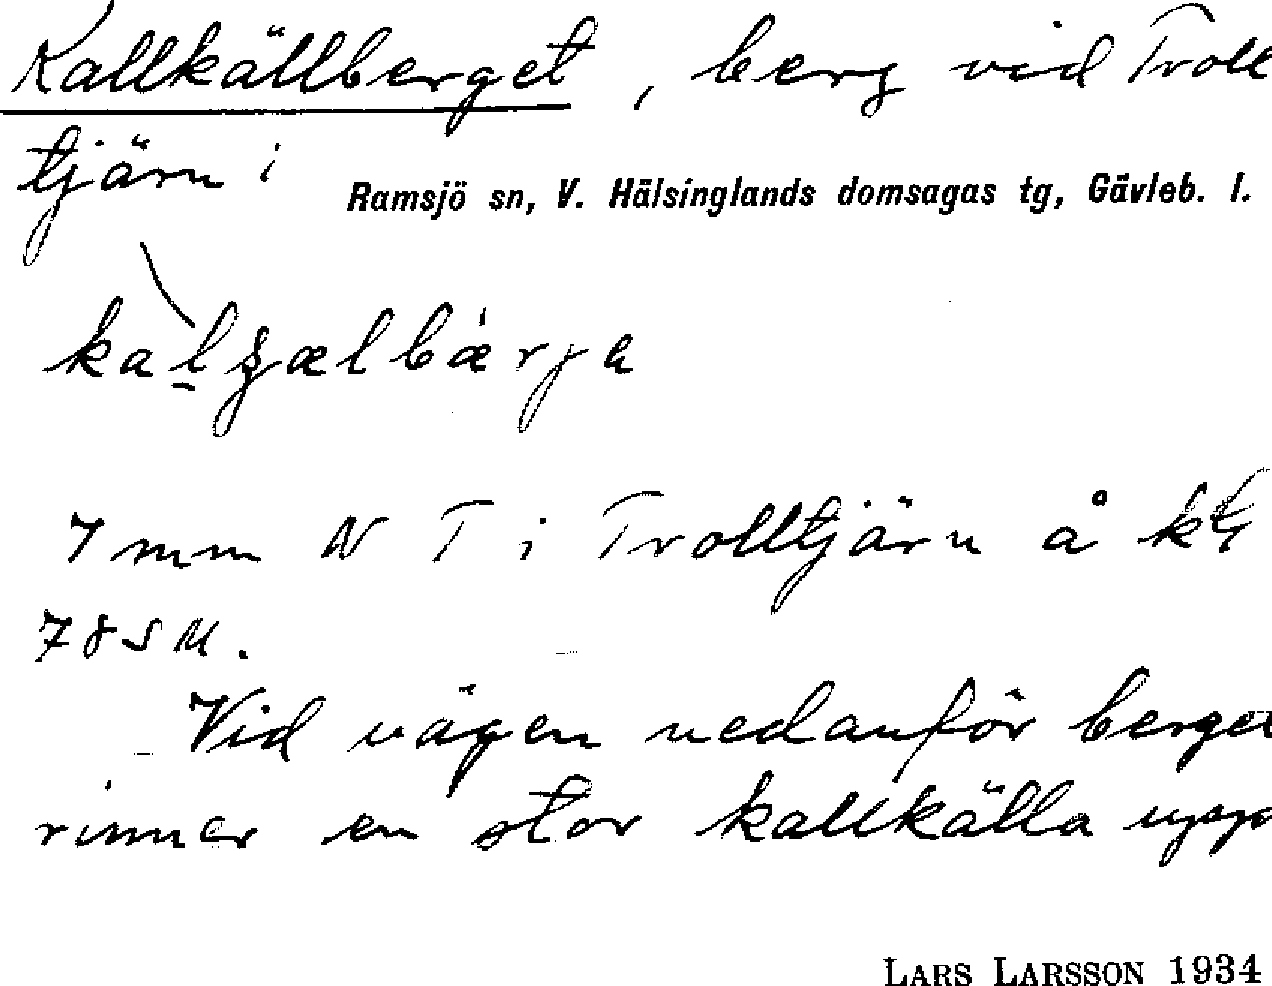 Kallkällberget, berg vid Troll
tjärn i
Ramsjö sn, V. Hälsinglands domsagas tg, Gävleb. l.
7 mm N T i Trolltjärn å kt
78 SU.
Vid vägen nedanför berget
rinner en stor kallkälla upp
LARS LARSSON 1934